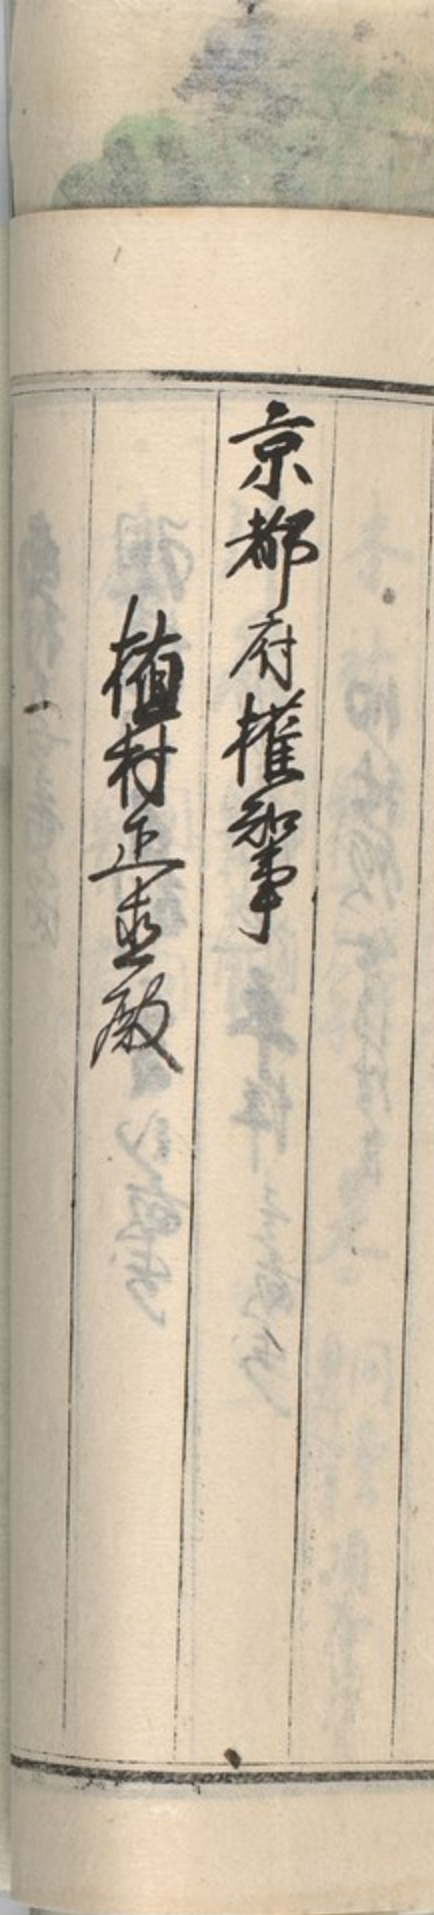 京都府權知事
植村正直殿